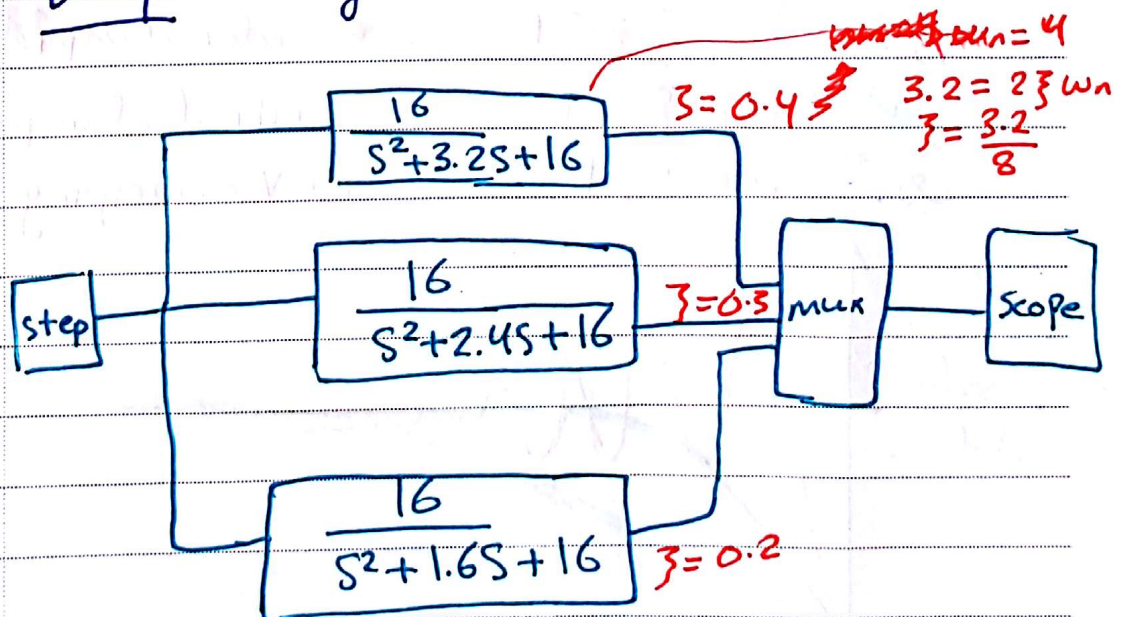 ωn = 4
16
S²+3.2S+16
ζ= 0.4
3.2 = 2ζωn
ζ= 3.2
8
16
S²+2.4S+16
ζ=0.3
mux
Scope
step
16
S²+1.6S+16
ζ= 0.2